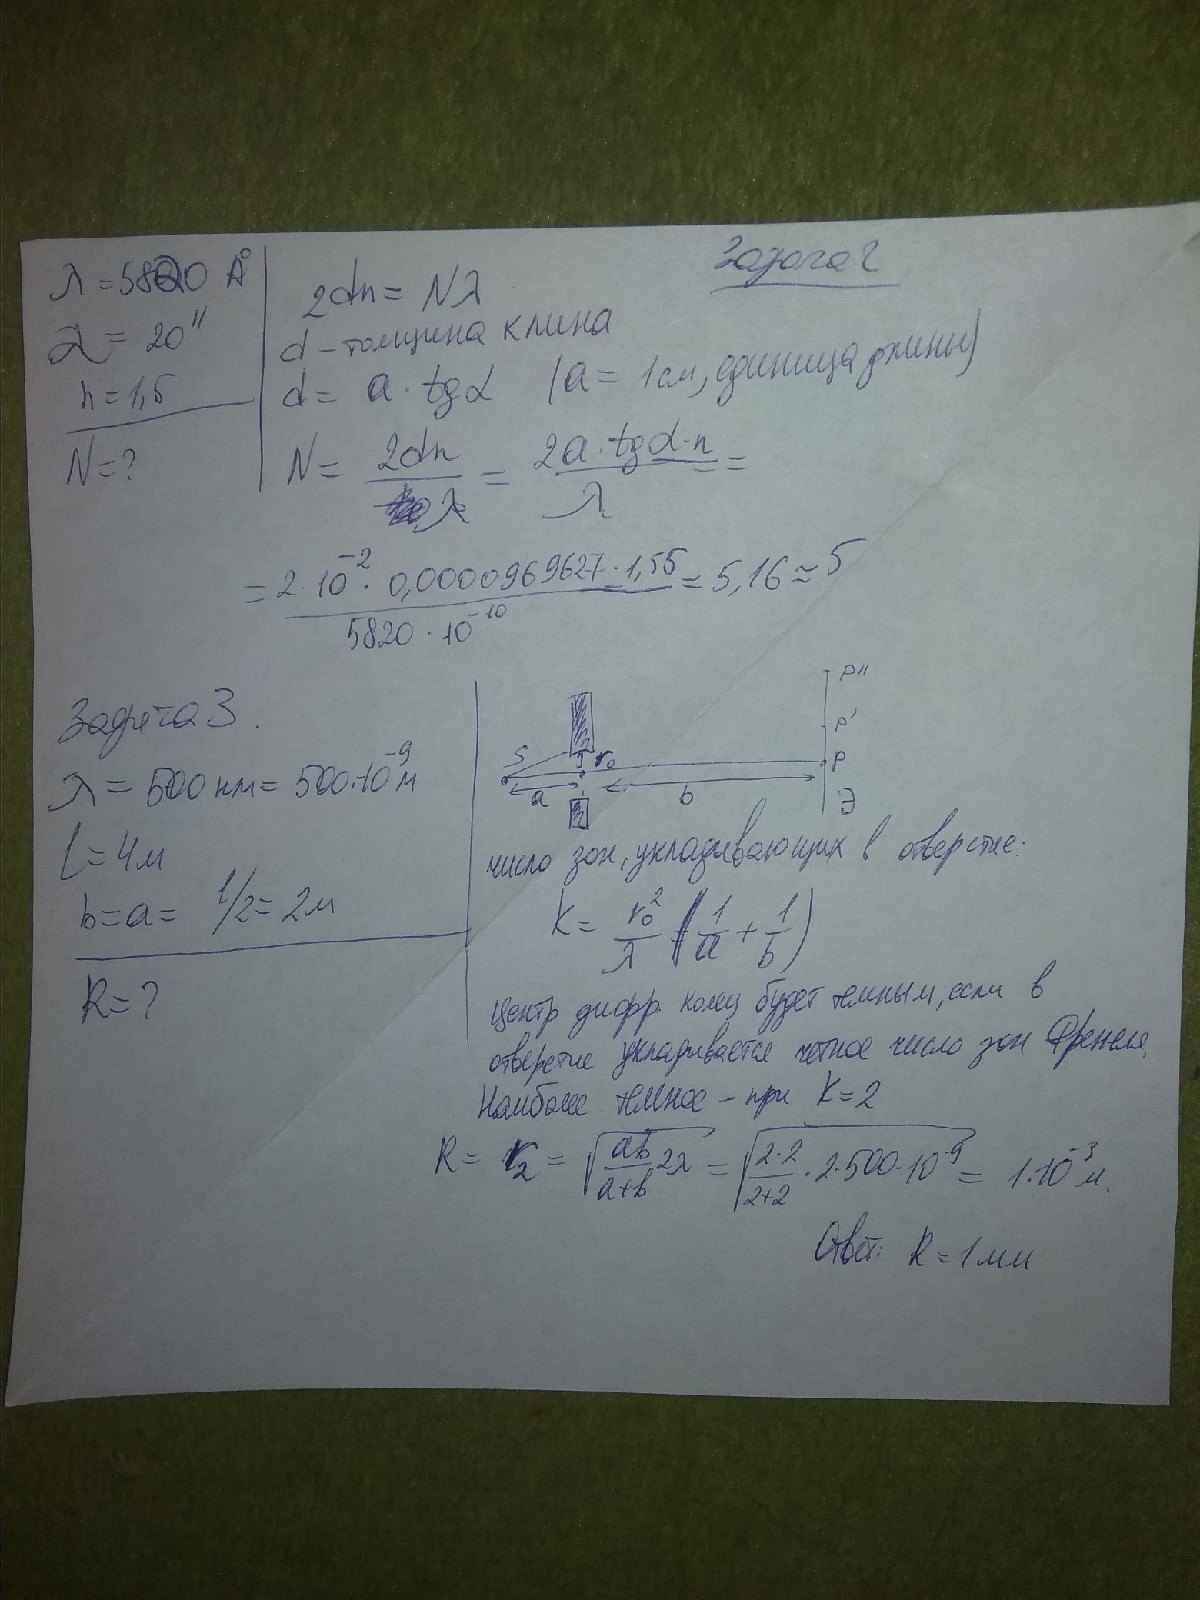 Задача 2
λ = 5820 Å
α = 20"
n = 1,5
N = ?
2dn = Nλ
d - толщина клина
d = a · tgα (a = 1 см, единица длины)
N = 2dn / λ = 2a · tgα · n / λ =
= 2 · 10⁻² · 0,0000969627 · 1,55 / 5820 · 10⁻¹⁰ = 5,16 ≈ 5
Задача 3.
λ = 500 нм = 500·10⁻⁹ м
l = 4 м
b = a = l/2 = 2 м
R = ?
S r₀ a b P" P' P Э
число зон, укладывающих в отверстие:
K = r₀² / λ (1/a + 1/b)
Центр дифр. колец будет темным, если в
отверстие укладывается четное число зон Френеля.
Наиболее темное - при K = 2
R = r₂ = √(ab/(a+b) 2λ) = √(2·2/(2+2) · 2·500·10⁻⁹) = 1·10⁻³ м.
Ответ: R = 1 мм